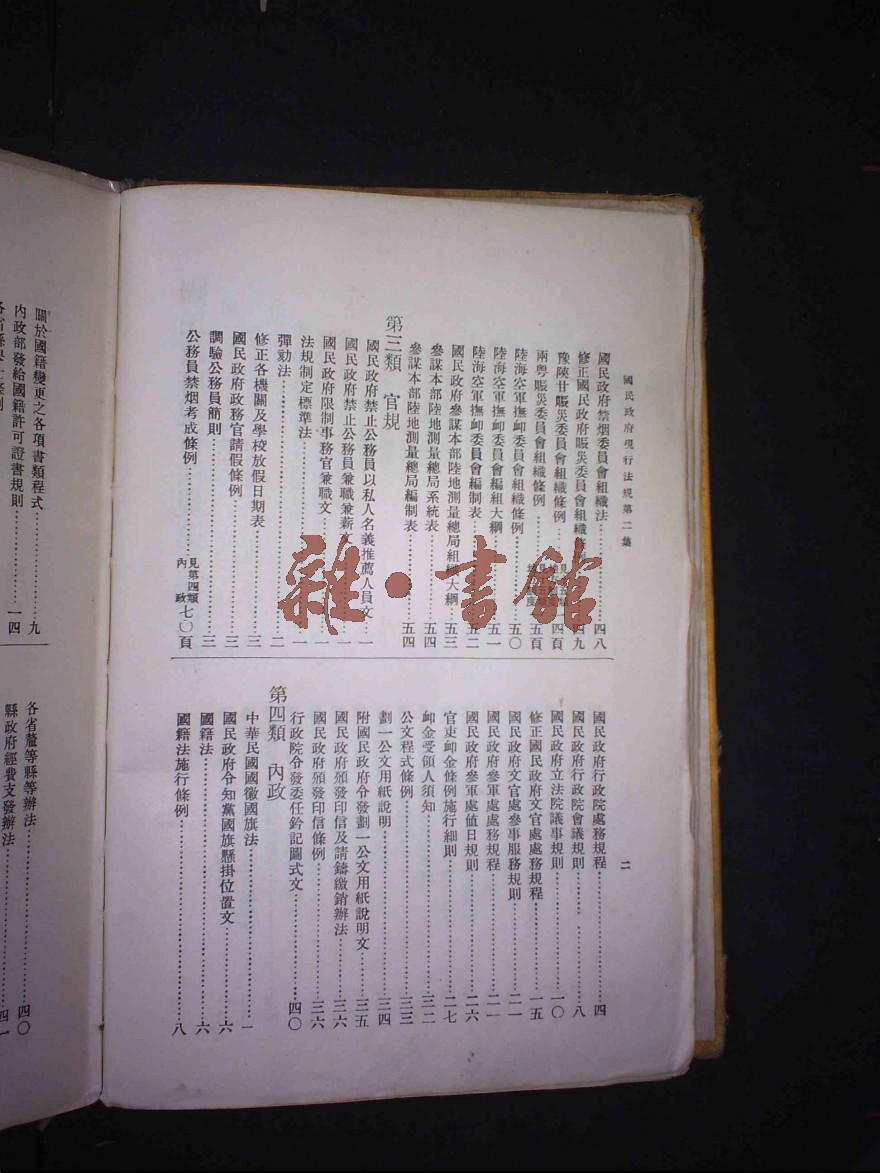 國民政府現行法規第二集
二
國民政府禁烟委員會組織法……四八
修正國民政府賑災委員會組織條例……四九
豫陝甘賑災委員會組織條例……四頁
兩粵賑災委員會組織條例……五頁
陸海空軍撫卹委員會組織條例……五〇
陸海空軍撫卹委員會編組大綱……五一
陸海空軍撫卹委員會編制表……五二
國民政府參謀本部陸地測量總局組織大綱……五三
參謀本部陸地測量總局系統表……五四
參謀本部陸地測量總局編制表……五四
第三類 官規
國民政府禁止公務員以私人名義推薦人員文……一
國民政府禁止公務員兼職兼薪文……一
國民政府限制事務官兼職文……一
法規制定標準法……一
彈劾法……二
修正各機關及學校放假日期表……三
國民政府政務官請假條例……三
調驗公務員簡則……三
公務員禁烟考成條例……見第四類內政七〇頁
國民政府行政院處務規程……四
國民政府行政院會議規則……八
國民政府立法院議事規則……一〇
修正國民政府文官處處務規程……一五
國民政府文官處參事服務規則……二一
國民政府參軍處處務規程……二一
國民政府參軍處值日規則……二六
官吏卹金條例施行細則……二七
卹金受領人須知……三二
公文程式條例……三三
劃一公文用紙說明……三四
附國民政府令發劃一公文用紙說明文……三五
國民政府頒發印信及請鑄繳銷辦法……三六
國民政府頒發印信條例……三六
行政院令發委任鈐記圖式文……四〇
第四類 內政
中華民國國徽國旗法……一
國民政府令知黨國旗懸掛位置文……六
國籍法……六
國籍法施行條例……八
關於國籍變更之各項書類程式……九
內政部發給國籍許可證書規則……一四
各省釐等縣等辦法……四〇
縣政府經費支發辦法……四一
雜·書館